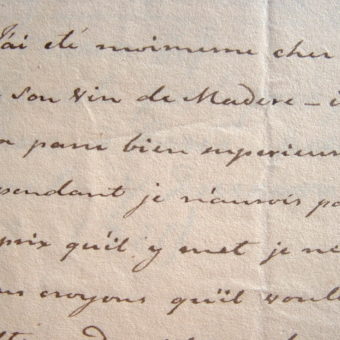 J'ai été moimeme cher
son vin de Madere - i
paru bien superieur
pendant je n'aurois pa
prix qu'il y met je ne
us croyons qu'il voul